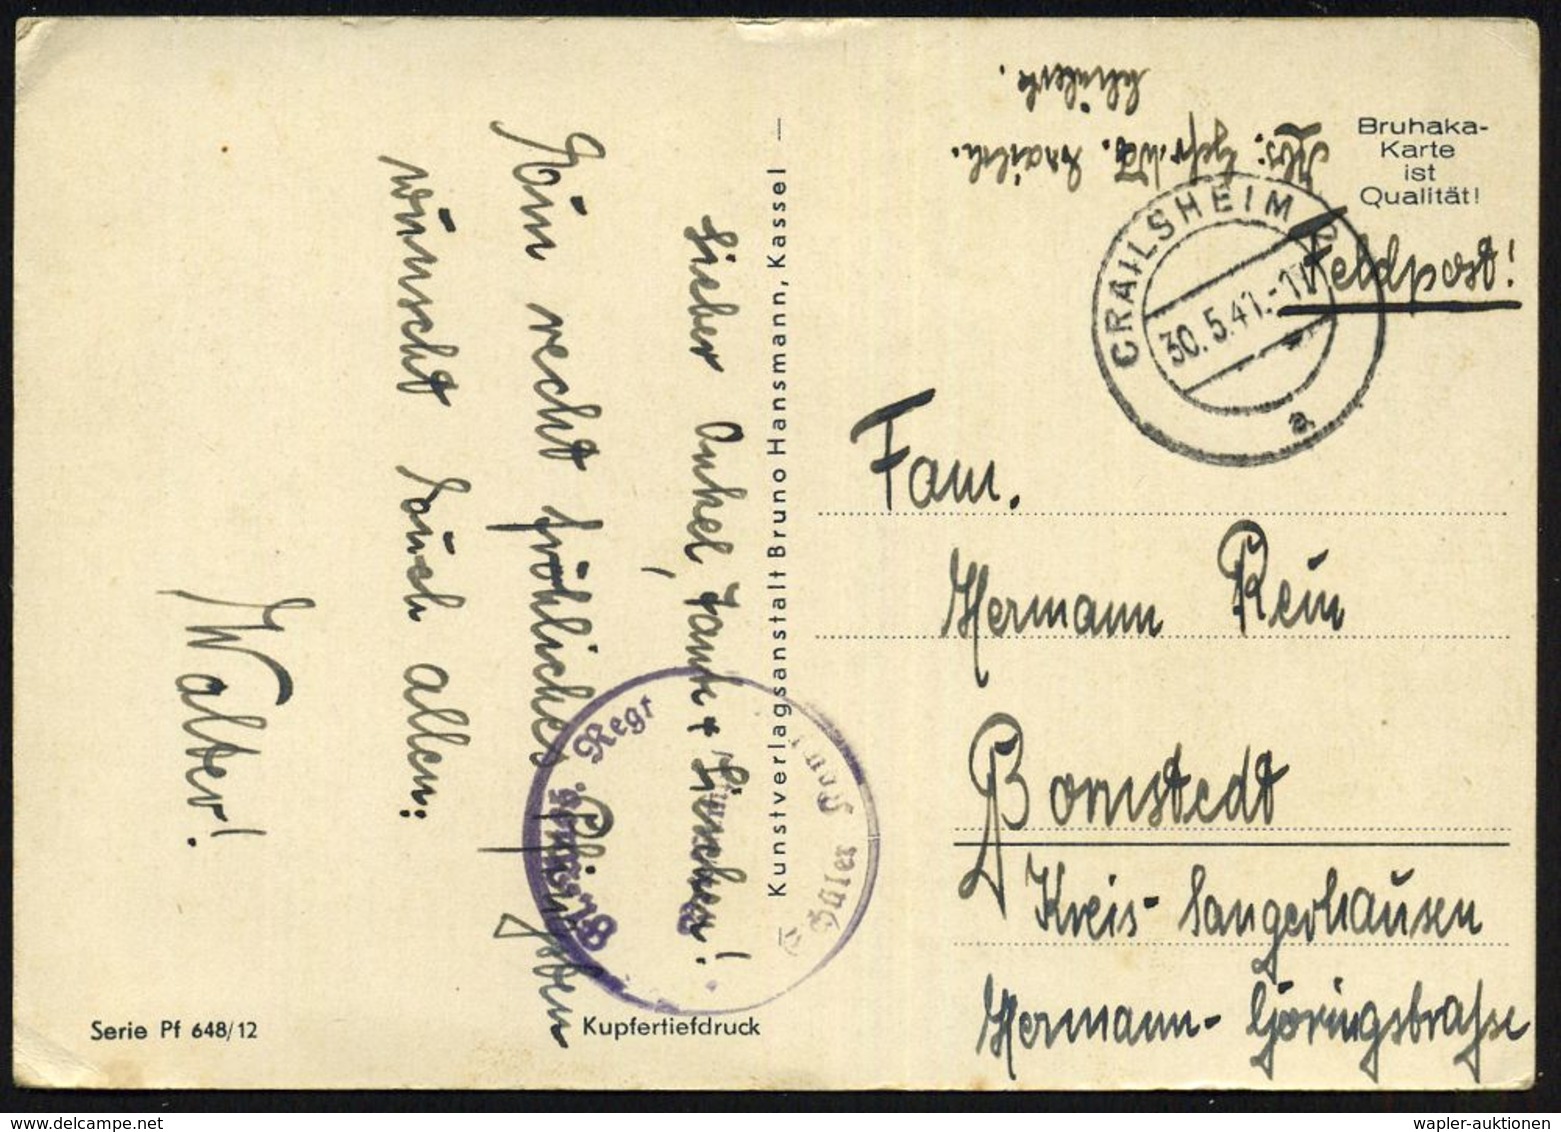 Lieber Onkel, Tante + Lieschen!
Ein recht fröhliches Pfingsten
wünscht Euch allen:
Walter!
Serie Pf 648/12
Kupfertiefdruck
Kunstverlagsanstalt Bruno Hansmann, Kassel
Regt
Bruhaka-
Karte
ist
Qualität!
CRAILSHEIM
30.5.41.-1
a
Feldpost!
Fam.
Hermann Rein
Bornstedt
Kreis- Sangerhausen
Hermann- Göringstraße
wapler-auktionen